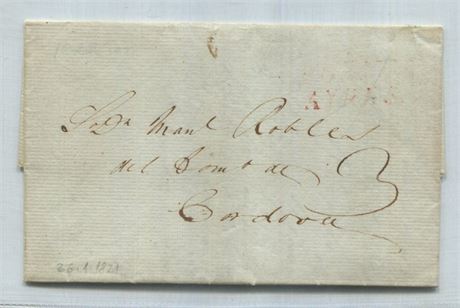 AYRES
Sor Dn Manl Robles
del Com o de 3
Cordova
26.1.1821